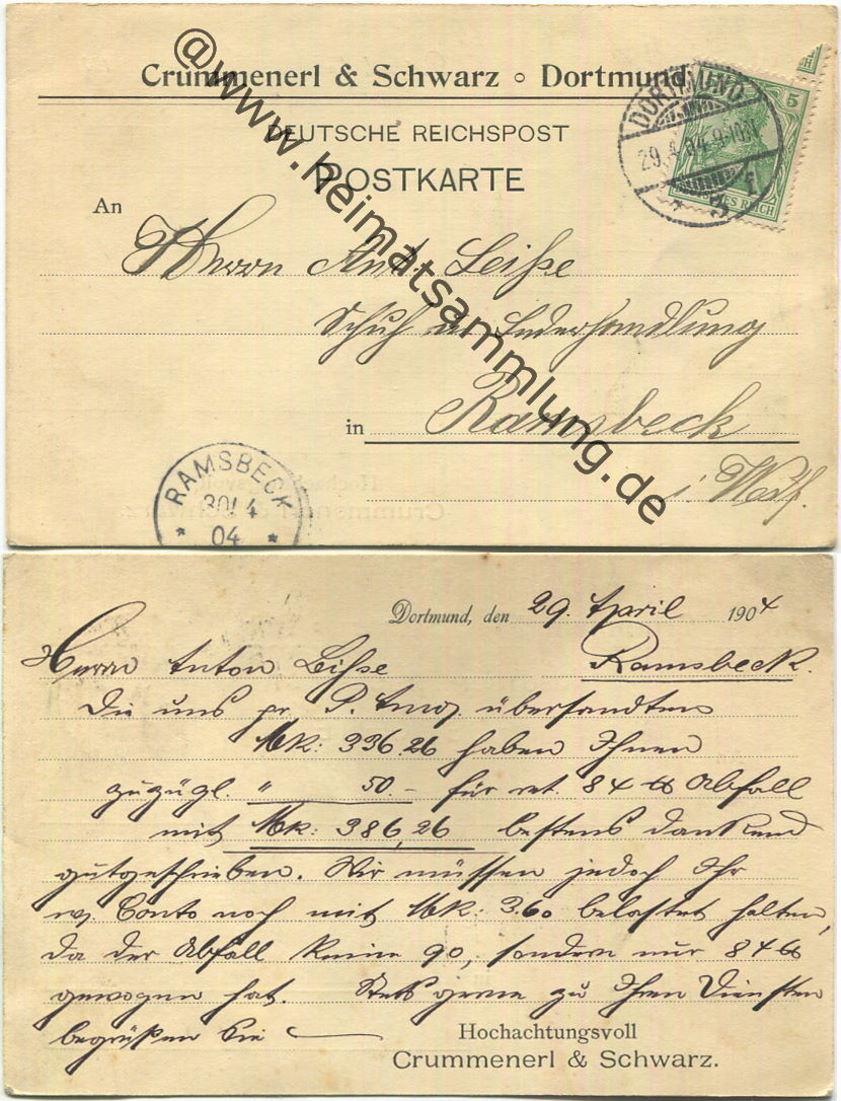 Crummenerl & Schwarz ○ Dortmund
DEUTSCHE REICHSPOST
POSTKARTE
DORTMUND
29.4.04.9-10
5
REICH
An
Herrn Ant. Leiße
Schuh u. Lederhandlung
in Ramsbeck
i. Westf.
RAMSBECK
30/4
04
@www.heimatsammlung.de
Dortmund, den 29. April 1904
Herrn Anton Leiße Ramsbeck.
Die uns pr. P. Anw. übersandten
Mk: 336.26 haben Ihnen
zuzügl. " 50.- für ret. 84 ℔ Abfall
mit Mk: 386,26 bestens dankend
gutgeschrieben. Wir müssen jedoch Ihr
w. Conto noch mit Mk: 3.60 belastet halten,
da der Abfall keine 90, sondern nur 84 ℔
gewogen hat. Stets gerne zu Ihren Diensten
begrüßen Sie
Hochachtungsvoll
Crummenerl & Schwarz.